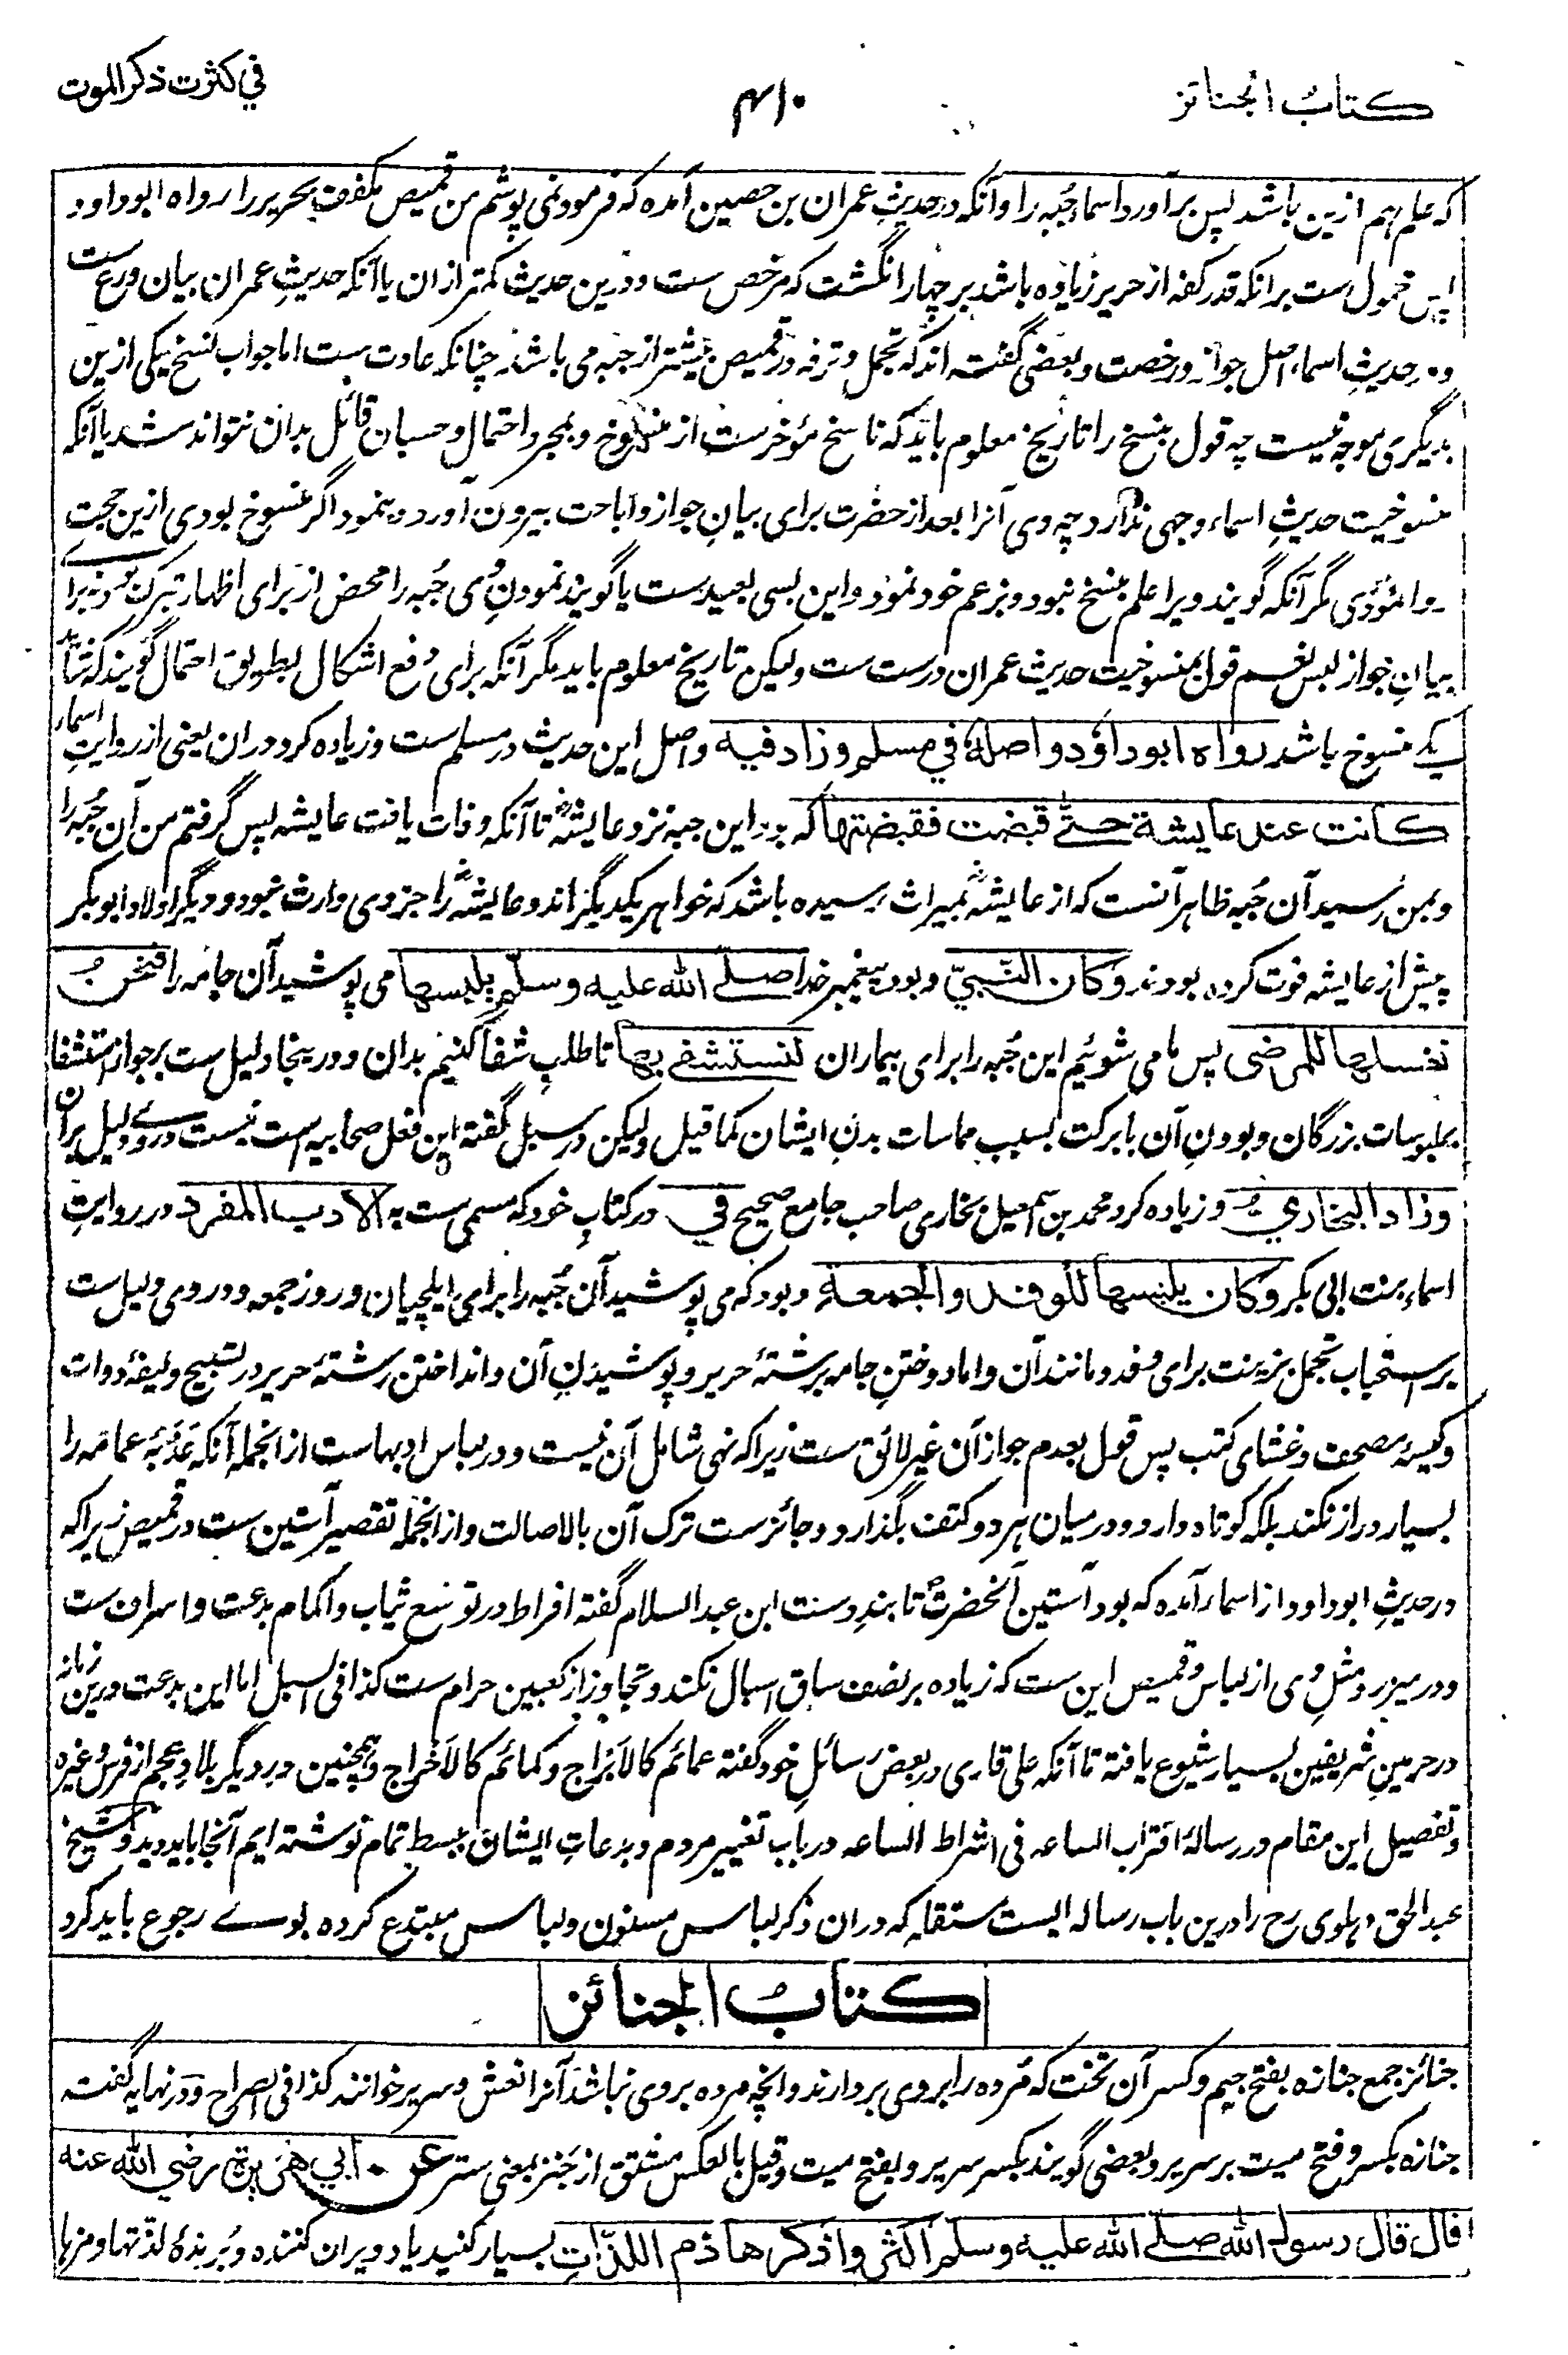 كتاب الجنائز
۴۱۰
في كثرت ذكر الموت
كه علم هم ازين باشد پس برآورد اسماء جُبه را و آنكه در حديثِ عمران بن حصين آمده كه فرمود نمى پوشم من قميص مكفف بحرير را رواه ابو داود
پس محمول ست برانكه قدر كفه از حرير زياده باشد بر چهار انگشت كه مرخص ست و درين حديث كمتر ازان يا آنكه حديثِ عمران بيان ورع ست
و حديثِ اسماء اصل جواز و رخصت و بعضى گفته اند كه تجمل و ترفه در قميص بيشتر از جبه مى باشد چنانكه عادت ست اما جواب نسخ يكى ازين
بديگرى موجه نيست چه قول بنسخ را تاريخ معلوم بايد كه ناسخ مؤخرست از منسوخ و بمجرد احتمال و حسبان قائل بدان نتواند شد يا آنكه
منسوخيت حديثِ اسماء وجهى ندارد چه وى آنرا بعد از حضرت براى بيانِ جواز و اباحت بيرون آورد و بنمود اگر منسوخ بودى ازين حجت
وا نمودى مگر آنكه گويند ويرا علم بنسخ نبود و بزعم خود نمود و اين بسى بعيدست يا گويند نمودنِ وى جُبه را محض از براى اظهار تبرك بود نه براى
بيانِ جواز لبس نعم قول بمنسوخيت حديث عمران درست ست وليكن تاريخ معلوم بايد مگر آنكه براى دفع اشكال بطريق احتمال گويند كه شايد
يكے منسوخ باشد رواه ابو داؤد و اصله في مسلم و زاد فيه و اصل اين حديث در مسلم ست و زياده كرد دران يعنى از روايتِ اسماء
كانت عند عايشة حتى قبضت فقبضتها كه بود اين جبه نزد عايشه تا آنكه وفات يافت عايشه پس گرفتم من آن جُبه را
و بمن رسيد آن جُبه ظاهر آنست كه از عايشه بميراث رسيده باشد كه خواهر يكديگراند و عايشه را جز وى وارث نبود و ديگر اولاد ابو بكر
پيش از عايشه فوت كرده بودند وكان النبيّ و بود پيغمبر خدا صلى الله عليه وسلم يلبسها مى پوشيد آن جامه را فنحن
نغسلها للمرضى پس ما مى شوئيم اين جُبه را براى بيماران لنستشفي بها تا طلبِ شفا كنيم بدان و درينجا دليل ست بر جواز استشفا
بملبوسات بزرگان و بودنِ آن با بركت بسبب مماسات بدنِ ايشان كما قيل وليكن در سبل گفته اين فعل صحابيه است نيست دروے دليل بران
وزاد البخاري و زياده كرد محمد بن اسمعيل بخارى صاحب جامع صحيح في در كتابِ خود كه مسمى ست به الادب المفرد در روايتِ
اسماء بنت ابى بكر وكان يلبسها للوفد والجمعة و بود كه مى پوشيد آن جُبه را براى ايلچيان و روز جمعه و دروى دليل ست
بر استحباب تجمل بزينت براى وفد و مانند آن و اما دوختنِ جامه برشتهٔ حرير و پوشيدنِ آن و انداختن رشتهٔ حرير در تسبيح و ليقهٔ دوات
و كيسهٔ مصحف و غشاى كتب پس قول بعدم جواز آن غير لائق ست زيرا كه نهى شامل آن نيست و در لباس ادبهاست از انجمله آنكه عَذَبهٔ عمامه را
بسيار دراز نكند بلكه كوتاه دارد و درميان هر دو كتف بگذارد و جائزست ترك آن بالاصالت و از انجمله تقصير آستين ست در قميص زيرا كه
در حديثِ ابو داود از اسماء آمده كه بود آستين آنحضرت تا بندِ دست ابن عبد السلام گفته افراط در توسيع ثياب و اكمام بدعت و اسراف ست
و در ميزر و مثلِ وى از لباس و قميص اين ست كه زياده بر نصف ساق اسبال نكند و تجاوز از كعبين حرام ست كذا فى السبل اما اين بدعت درين زمانه
در حرمين شريفين بسيار شيوع يافته تا آنكه على قارى در بعض رسائلِ خود گفته عمائم كالابراج و كمائم كالاخراج و همچنين در ديگر بلادِ عجم از فرس و غيره
و تفصيل اين مقام در رسالهٔ اقتراب الساعه فى اشراط الساعه در باب تغيير مردم و بدعاتِ ايشان ببسط تمام نوشته ايم آنجا بايد ديد و شيخ
عبد الحق دهلوى رح را درين باب رساله ايست مستقله كه دران ذكر لباس مسنون و لباس مبتدع كرده بوے رجوع بايد كرد
كتاب الجنائز
جنائز جمع جنازه بفتح جيم و كسر آن تخت كه مُرده را بروى بردارند و آنچه مرده بروى نباشد آنرا نعش و سرير خوانند كذا فى الصراح و در نهايه گفته
جنازه بكسر و فتح ميت بر سرير و بعضى گويند بكسر سرير و بفتح ميت و قيل بالعكس مشتق از جَنز بمعنى ستر عن ابي هريرة رضي الله عنه
قال قال رسول الله صلى الله عليه وسلم اكثروا ذكر هاذم اللذّاتِ بسيار كنيد ياد ويران كننده و بُرندهٔ لذّتها و مزها